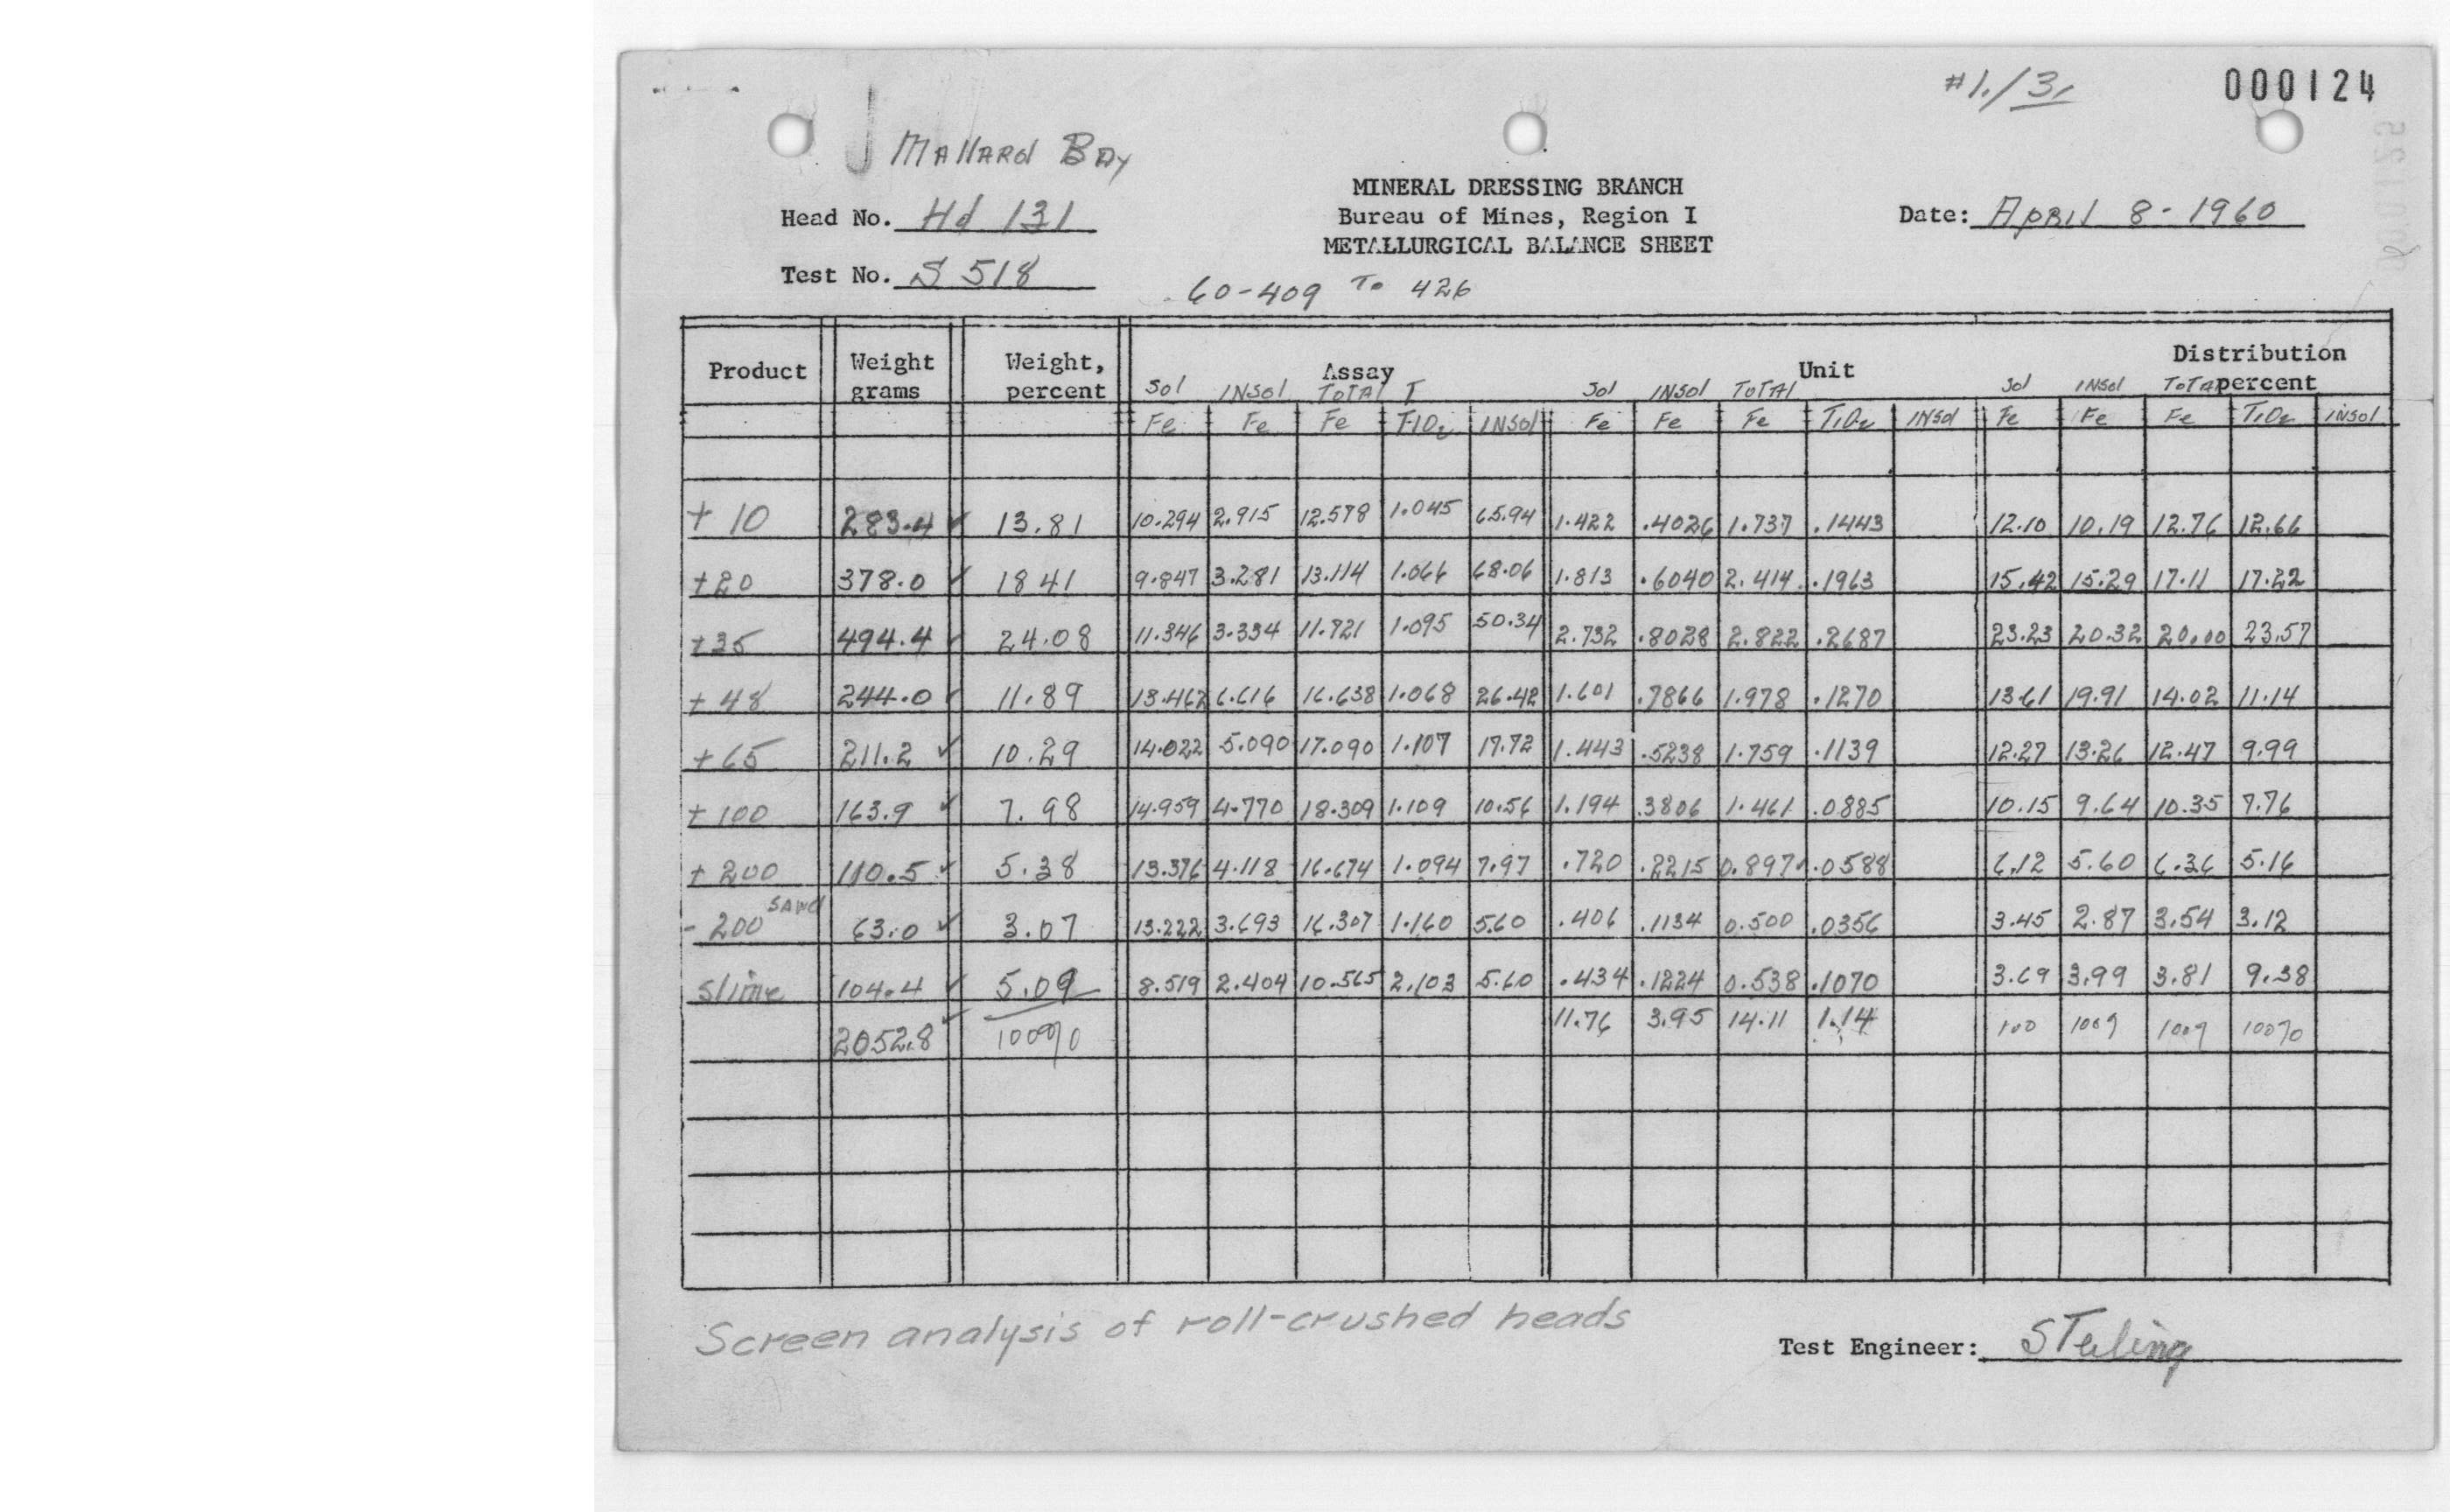 #1./3, 000124
Mallard Bay
MINERAL DRESSING BRANCH
Head No. Hd 131 Bureau of Mines, Region I Date: April 8-1960
METALLURGICAL BALANCE SHEET
Test No. S 518
60-409 To 426
Product Weight grams Weight, percent Assay Unit Distribution percent
Sol INSol TOTAL T Sol INSol TOTAL Sol INSol TOTAL
Fe Fe Fe TIO2 INSol Fe Fe Fe TiO2 INSol Fe Fe Fe TiO2 INSol
+10 283.4 ✓ 13.81 10.294 2.915 12.578 1.045 65.94 1.422 .4026 1.737 .1443 12.10 10.19 12.76 12.66
+20 378.0 ✓ 18 41 9.847 3.281 13.114 1.066 68.06 1.813 .6040 2.414 .1963 15.42 15.29 17.11 17.22
+35 494.4 ✓ 24.08 11.346 3.334 11.721 1.095 50.34 2.732 .8028 2.822 .2687 23.23 20.32 20.00 23.57
+48 244.0 ✓ 11.89 13.467 6.616 16.638 1.068 26.42 1.601 .7866 1.978 .1270 13.61 19.91 14.02 11.14
+65 211.2 ✓ 10.29 14.022 5.090 17.090 1.107 17.72 1.443 .5238 1.759 .1139 12.27 13.26 12.47 9.99
+100 163.9 ✓ 7.98 14.959 4.770 18.309 1.109 10.56 1.194 .3806 1.461 .0885 10.15 9.64 10.35 7.76
+200 110.5 ✓ 5.38 13.376 4.118 16.674 1.094 7.97 .720 .2215 0.897 .0588 6.12 5.60 6.36 5.16
-200 SAND 63.0 ✓ 3.07 13.222 3.693 16.307 1.160 5.60 .406 .1134 0.500 .0356 3.45 2.87 3.54 3.12
slime 104.4 ✓ 5.09 8.519 2.404 10.565 2.103 5.60 .434 .1224 0.538 .1070 3.69 3.99 3.81 9.38
2052.8 ✓ 100% 11.76 3.95 14.11 1.14 100 100% 100% 100%
Screen analysis of roll-crushed heads
Test Engineer: Sterling